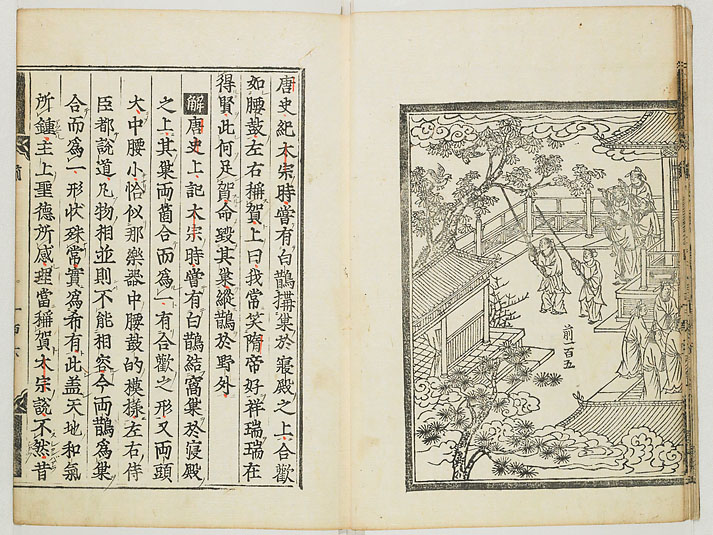 前一百五
唐史紀太宗時嘗有白鵲搆巢於寢殿之上合歡
如腰鼓左右稱賀上曰我常笑隋帝好祥瑞瑞在
得賢此何足賀命毀其巢縱鵲於野外
解唐史上記太宗時嘗有白鵲結窩巢於寢殿
之上其巢兩箇合而為一有合歡之形又兩頭
大中腰小恰似那樂器中腰鼓的模樣左右侍
臣都說道凡物相並則不能相容今兩鵲為巢
合而為一形狀殊常實為希有此盖天地和氣
所鍾主上聖德所感理當稱賀太宗說不然昔